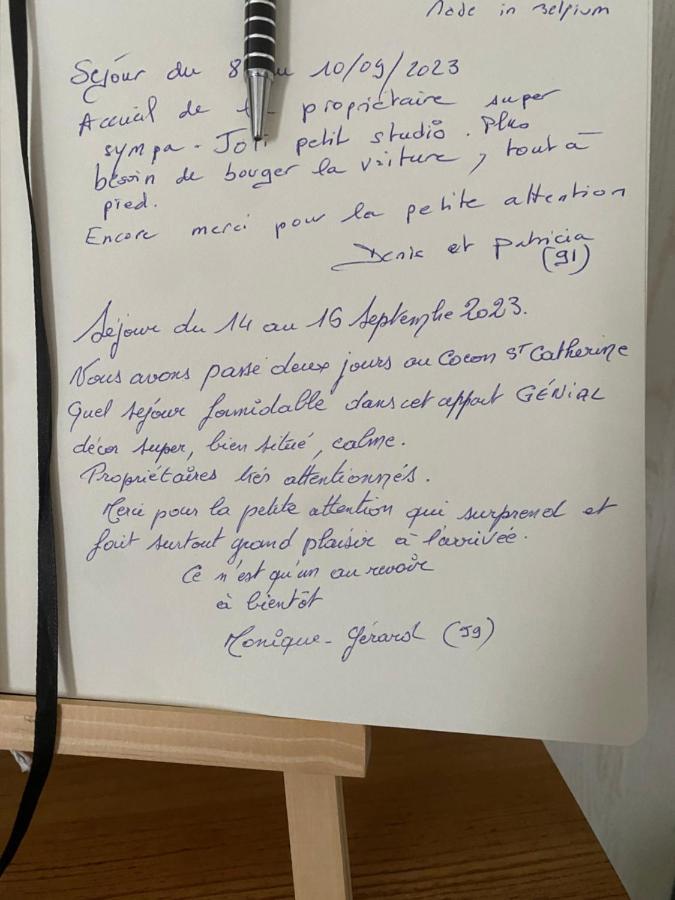 Made in Belgium
Séjour du 8 au 10/09/2023
Accueil de propriétaire super
sympa. Joli petit studio. Plus
besoin de bouger la voiture, tout à
pied.
Encore merci pour la petite attention
Denis et Patricia
(91)
Séjour du 14 au 16 Septembre 2023.
Nous avons passé deux jours au Cocon St Catherine
Quel séjour formidable dans cet appart GÉNIAL
décor super, bien situé, calme.
Propriétaires très attentionnés.
Merci pour la petite attention qui surprend et
fait surtout grand plaisir à l'arrivée.
Ce n'est qu'un au revoir
à bientôt
Monique - Gérard (59)